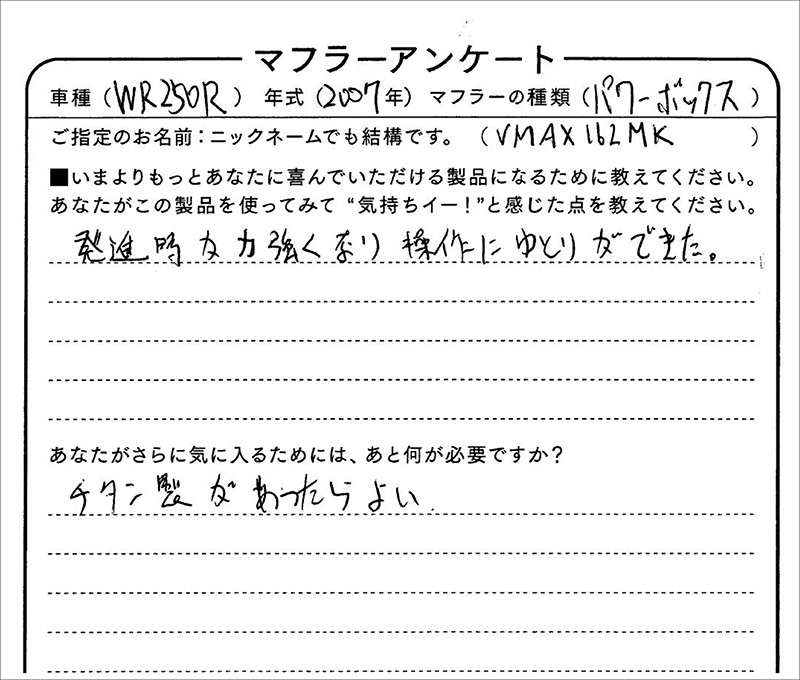 マフラーアンケート
車種（WR250R） 年式（2007年） マフラーの種類（パワーボックス）
ご指定のお名前：ニックネームでも結構です。（VMAX162MK）
■いまよりもっとあなたに喜んでいただける製品になるために教えてください。
あなたがこの製品を使ってみて“気持ちイー！”と感じた点を教えてください。
発進時が力強くなり操作にゆとりができた。
あなたがさらに気に入るためには、あと何が必要ですか？
チタン製があったらよい